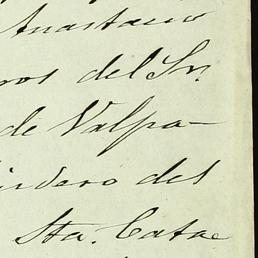 Anastacio
ros del Sr.
de Valpa-
del
Sta. Cata